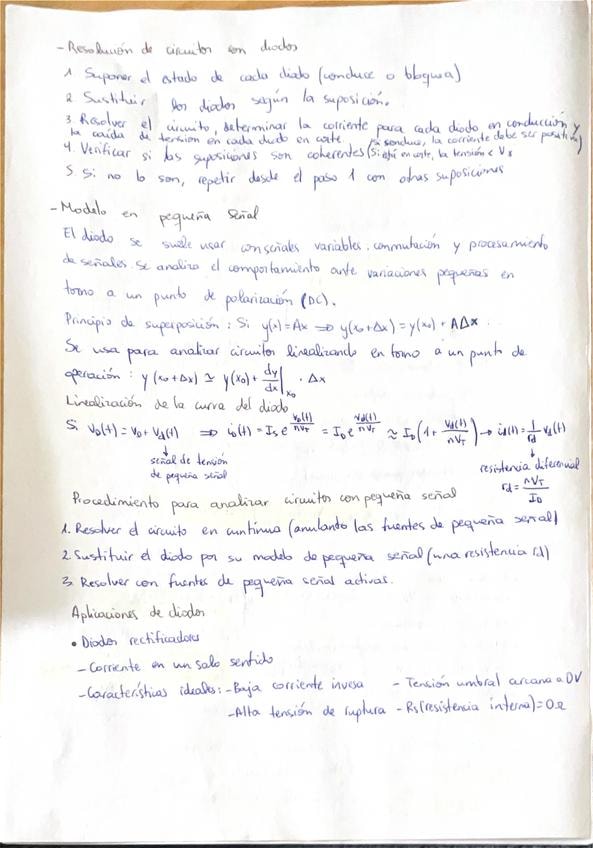 - Resolución de circuitos con diodos
1 Suponer el estado de cada diodo (conduce o bloquea)
2 Sustituir los diodos según la suposición.
3. Resolver el circuito, determinar la corriente para cada diodo en conducción y
la caída de tensión en cada diodo en corte (si conduce, la corriente debe ser positiva)
4. Verificar si las suposiciones son coherentes (si está en corte, la tensión < Vγ
5. Si no lo son, repetir desde el paso 1 con otras suposiciones
- Modelo en pequeña señal
El diodo se suele usar con señales variables: conmutación y procesamiento
de señales. Se analiza el comportamiento ante variaciones pequeñas en
torno a un punto de polarización (DC).
Principio de superposición: Si y(x) = Ax ⇒ y(x₀+Δx) = y(x₀) + AΔx
Se usa para analizar circuitos linealizando en torno a un punto de
operación: y(x₀+Δx) ≃ y(x₀) + dy/dx|x₀ · Δx
Linealización de la curva del diodo
Si v_D(t) = V_D + v_d(t) ⇒ i_D(t) = I_S e^(v_D(t)/nV_T) = I_D e^(v_d(t)/nV_T) ≃ I_D(1 + v_d(t)/nV_T) → i_d(t) = 1/r_d v_d(t)
↓ ↓
señal de tensión resistencia diferencial
de pequeña señal r_d = nV_T/I_D
Procedimiento para analizar circuitos con pequeña señal
1. Resolver el circuito en continua (anulando las fuentes de pequeña señal)
2. Sustituir el diodo por su modelo de pequeña señal (una resistencia rd)
3. Resolver con fuentes de pequeña señal activas.
Aplicaciones de diodos
• Diodos rectificadores
- Corriente en un solo sentido
- Características ideales: - Baja corriente inversa - Tensión umbral cercana a 0V
- Alta tensión de ruptura - Rs (resistencia interna) = 0Ω